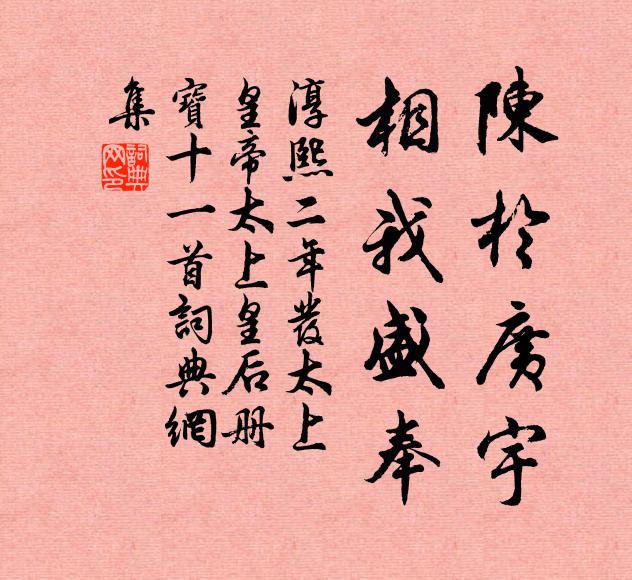 陳於廣宇
相我盛奉
淳熙二年發太上
皇帝太上皇后册
寶十一首詞典網
集
詞典网印